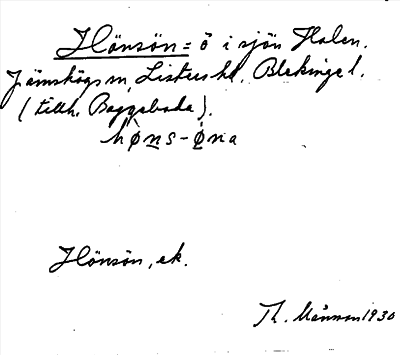 Hönsön = ö i sjön Halen.
Jämshögs sn, Listers hd, Blekinge l.
(tillh. Baggeboda).
hø̀ns-ø̣na
Hönsön, ek.
Th. Månsson 1930